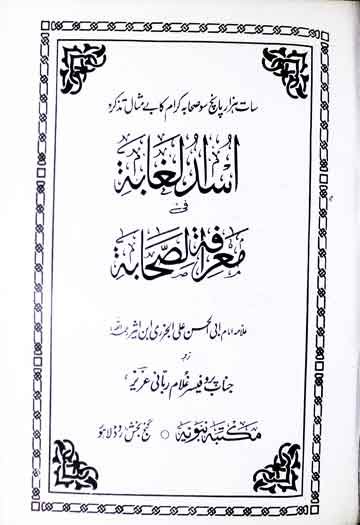 سات ہزار پانچ سو صحابہ کرام کا بے مثال تذکرہ
اُسدُ الغابۃ
فی
معرفۃ الصحابۃ
علامہ امام ابی الحسن علی الجزری ابن اثیر
جناب پروفیسر غلام ربانی عزیز
مکتبہ نبویہ ○ گنج بخش روڈ لاہور